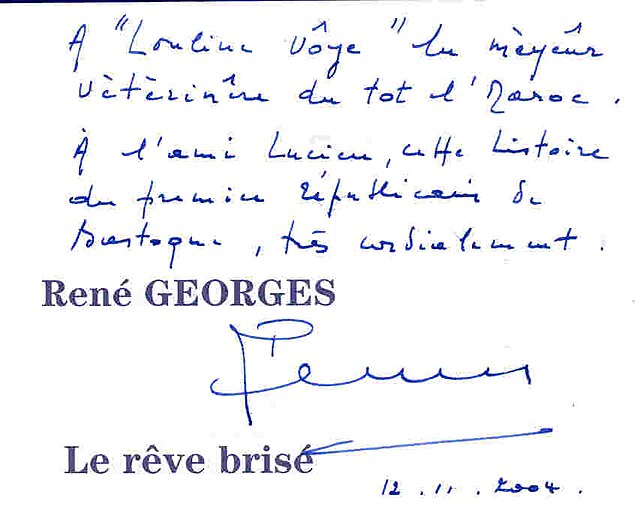 A "Loulinc Vôye" lu mèyeûr
vètèrinêre du tot l'Maroc.
À l'ami Lucien, cette histoire
du premier républicain de
Bastogne, très cordialement.
René GEORGES
Le rêve brisé
12.11.2004.